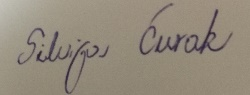 Silvija Ćurak